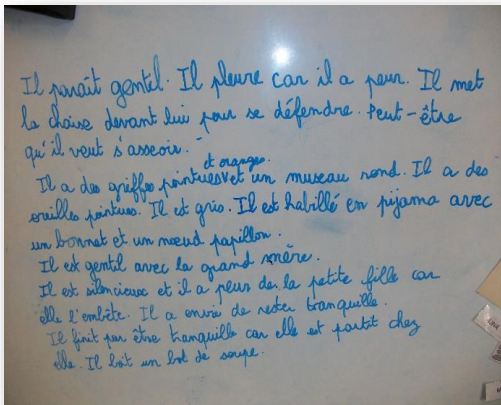 Il paraît gentil. Il pleure car il a peur. Il met
la chaise devant lui pour se défendre. Peut-être
qu'il veut s'asseoir.
et oranges
Il a des griffes pointues et un museau rond. Il a des
oreilles pointues. Il est gris. Il est habillé en pijama avec
un bonnet et un nœud papillon.
Il est gentil avec la grand mère.
Il est silencieux et il a peur de la petite fille car
elle l'embête. Il a envie de rester tranquille.
Il finit par être tranquille car elle est partit chez
elle. Il boit un bol de soupe.